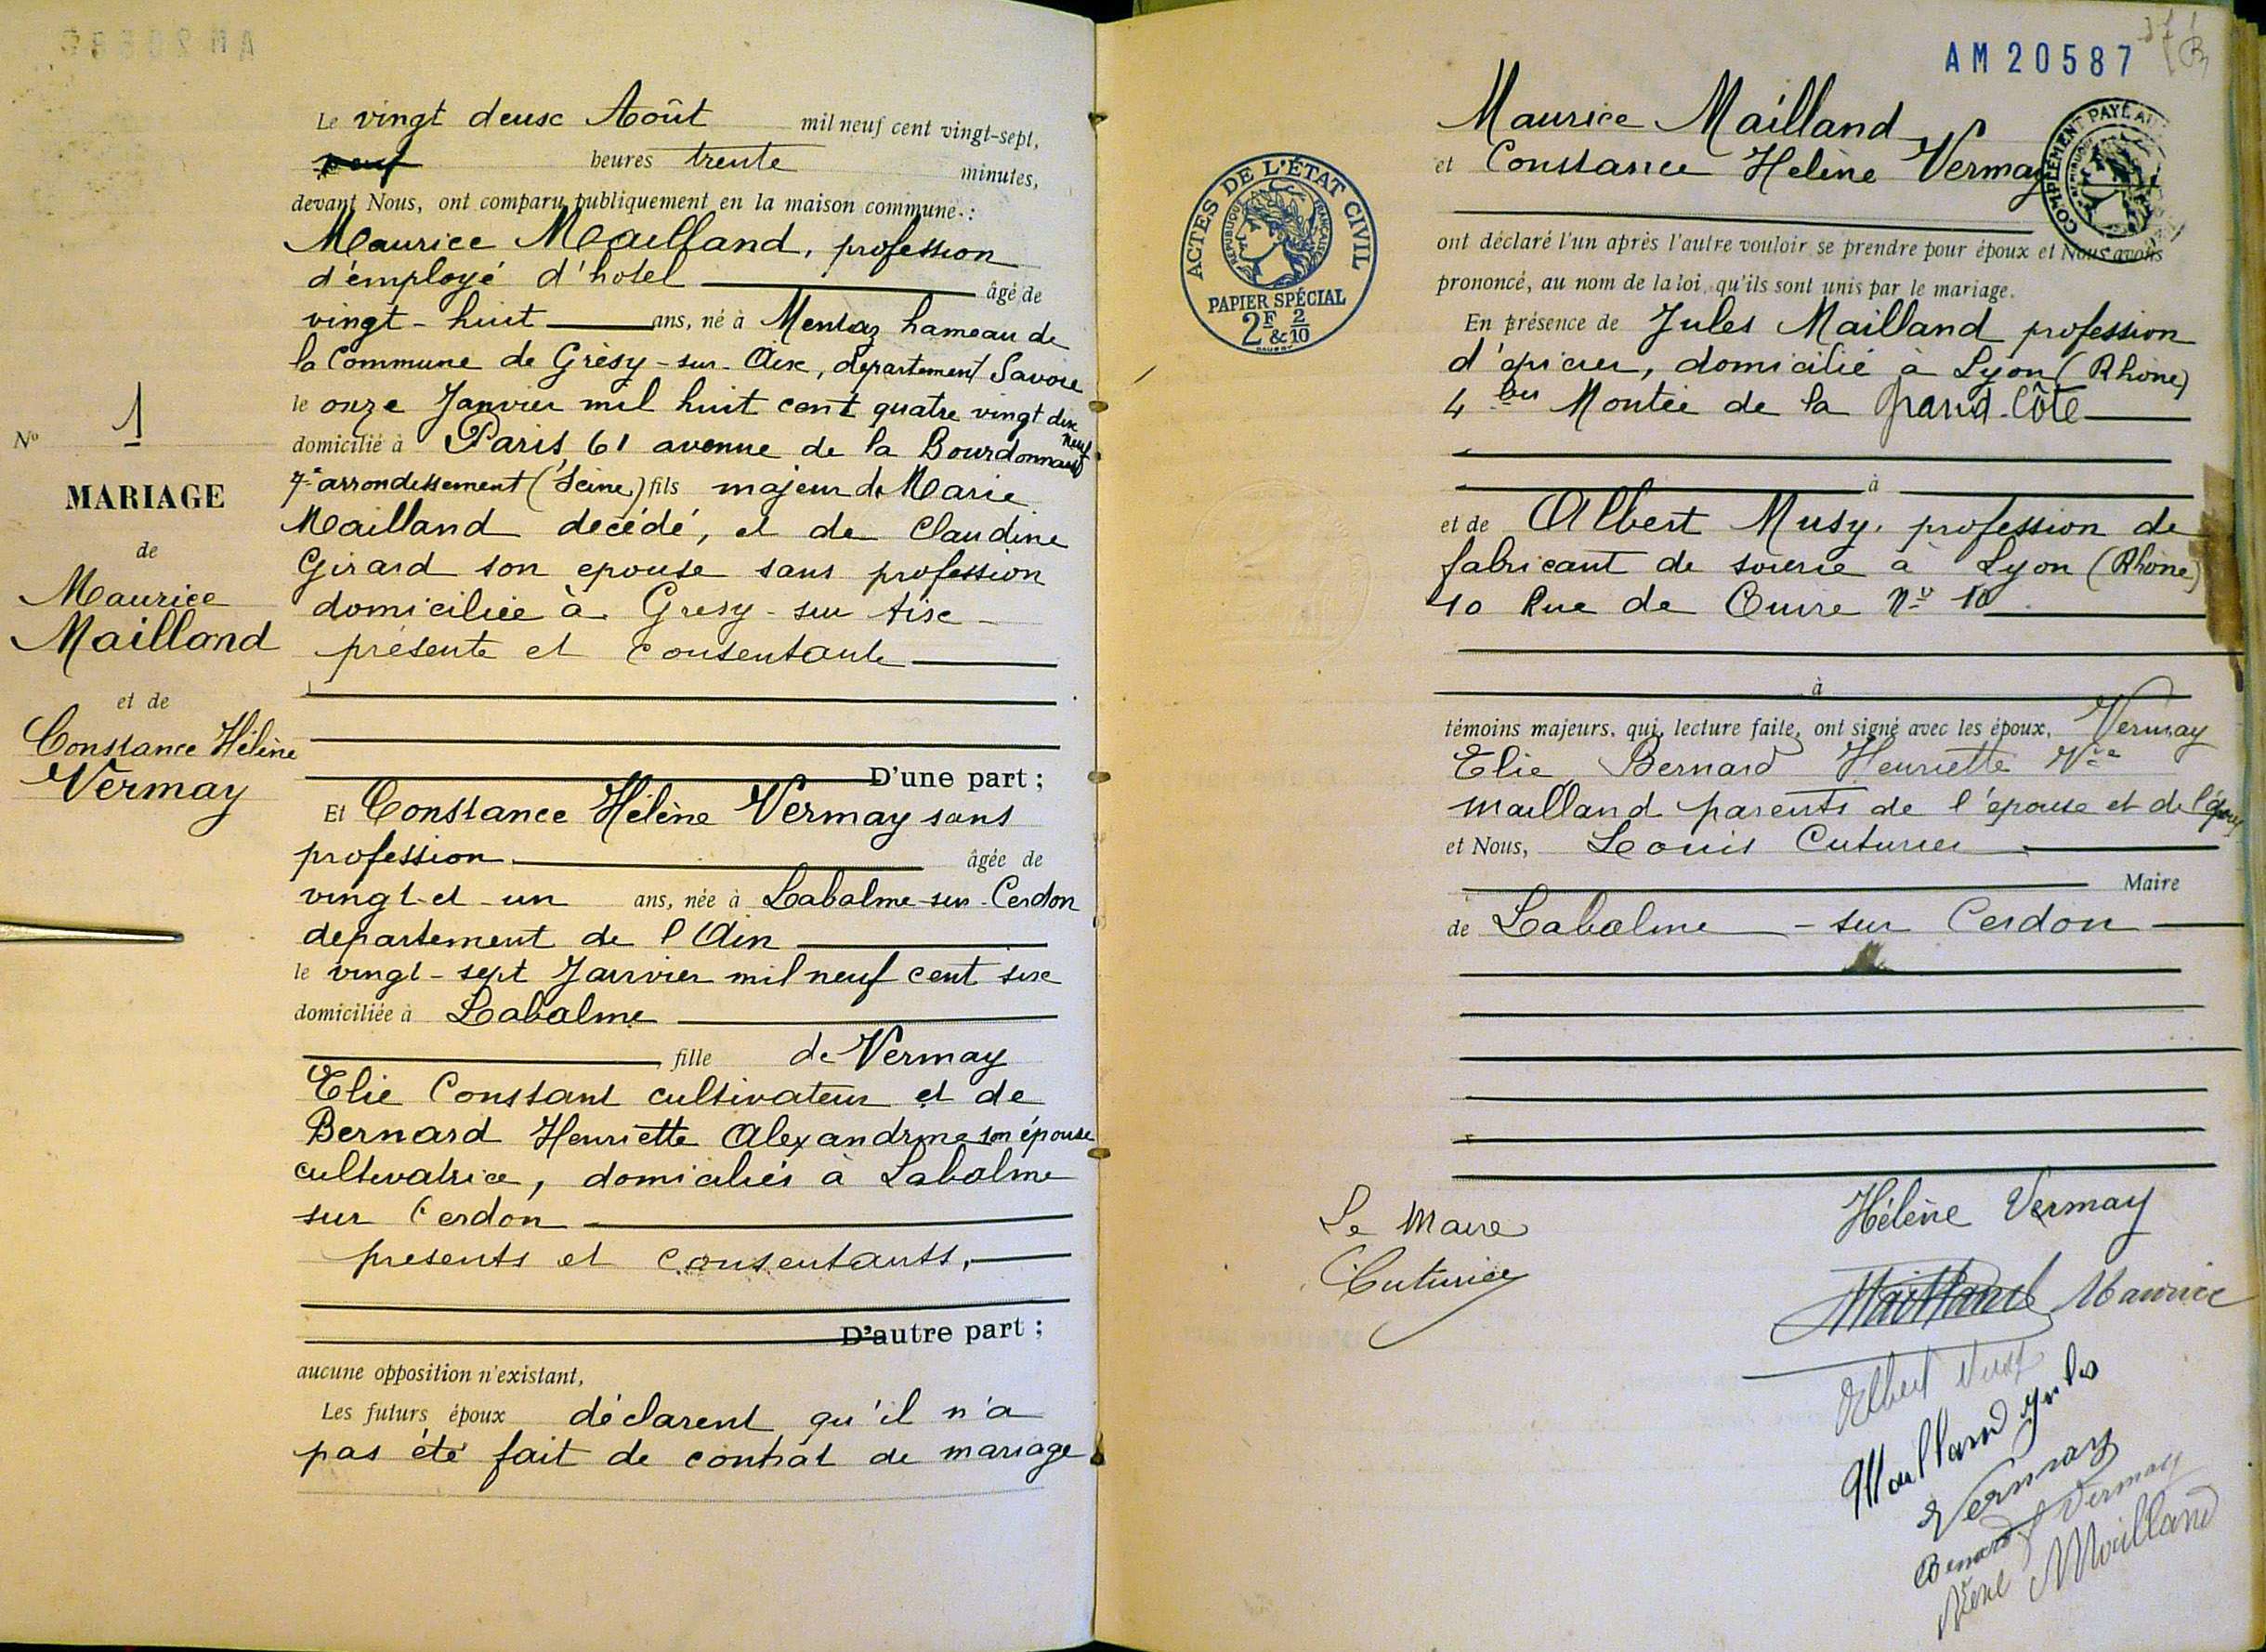 Le vingt deux Août mil neuf cent vingt-sept,
neuf heures trente minutes,
devant Nous, ont comparu publiquement en la maison commune :
Maurice Mailland, profession
d'employé d'hotel âgé de
vingt-huit ans, né à Mentaz hameau de
la Commune de Grèsy-sur-Aix, département Savoie
le onze Janvier mil huit cent quatre vingt dix
neuf
domicilié à Paris, 61 avenue de la Bourdonnais
7e arrondissement (Seine) fils majeur de Marie
Mailland decédé, et de Claudine
Girard son epouse sans profession
domiciliée à Gresy-sur Aix-
présente et consentante
D'une part ;
Et Constance Hélène Vermay sans
profession âgée de
vingt-et-un ans, née à Labalme-sur-Cerdon
departement de l'Ain
le vingt-sept Janvier mil neuf cent six
domiciliée à Labalme
fille de Vermay
Elie Constant cultivateur et de
Bernard Henriette Alexandrine son épouse
cultivatrice, domiciliés à Labalme
sur Cerdon
présents et consentants,
D'autre part ;
aucune opposition n'existant,
Les futurs époux déclarent qu'il n'a
pas été fait de contrat de mariage
No 1
MARIAGE
de
Maurice
Mailland
et de
Constance Hélène
Vermay
AM 20587
Maurice Mailland
et Constance Helène Vermay
COMPLÉMENT PAYÉ AU
ACTES DE L'ÉTAT CIVIL
RÉPUBLIQUE FRANÇAISE
PAPIER SPÉCIAL
2F & 2/10
ont déclaré l'un après l'autre vouloir se prendre pour époux et Nous avons
prononcé, au nom de la loi, qu'ils sont unis par le mariage.
En présence de Jules Mailland profession
d'épicier, domicilié à Lyon (Rhone)
4 bis Montée de la Grand-Côte
à
et de Albert Musy, profession de
fabricant de soierie à Lyon (Rhône)
10 Rue de Cuire No 10
à
témoins majeurs, qui, lecture faite, ont signé avec les époux, Vermay
Elie Bernard Henriette Vve
Mailland parents de l'épouse et de l'époux
et Nous, Louis Cuturier
Maire
de Labalme-sur Cerdon
Le Maire
Cuturier
Hélène Vermay
Mailland Maurice
Albert Musy
Mailland Jules
Vermay
Bernard Vermay
Veuve Mailland